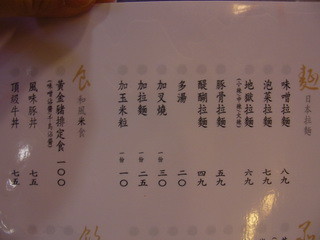 麵 日本拉麵
味噌拉麵 八九
泡菜拉麵 七九
地獄拉麵 六九
(小辣.中辣.大辣)
豚骨拉麵 五九
醍醐拉麵 四九
多湯 二〇
加叉燒 一份 三〇
加拉麵 一份 二五
加玉米粒 一份 一〇
食 和風米食
黃金豬排定食 一〇〇
風味豚丼 七五
頂級牛丼 七五
飲